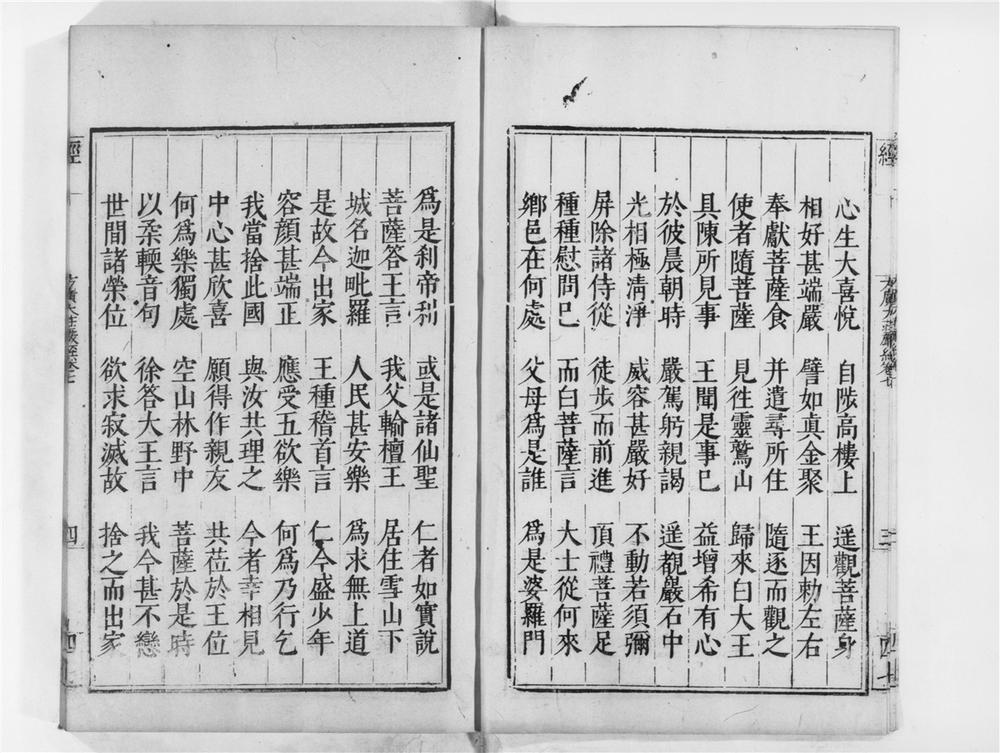 心生大喜悅 自陞高樓上 遥觀菩薩身
相好甚端嚴 譬如真金聚 王因勅左右
奉獻菩薩食 并遣尋所住 隨逐而觀之
使者隨菩薩 見徃靈鷲山 歸來白大王
具陳所見事 王聞是事已 益增希有心
於彼晨朝時 嚴駕躬親謁 遥覩巖石中
光相極清淨 威容甚嚴好 不動若須彌
屏除諸侍從 徒步而前進 頂禮菩薩足
種種慰問已 而白菩薩言 大士從何來
鄉邑在何處 父母爲是誰 爲是婆羅門
爲是刹帝利 或是諸仙聖 仁者如實說
菩薩答王言 我父輸檀王 居住雪山下
城名迦毗羅 人民甚安樂 爲求無上道
是故今出家 王種稽首言 仁今盛少年
容顏甚端正 應受五欲樂 何爲乃行乞
我當捨此國 與汝共理之 今者幸相見
中心甚欣喜 願得作親友 共莅於王位
何爲樂獨處 空山林野中 菩薩於是時
以柔輭音句 徐答大王言 我今甚不戀
世間諸榮位 欲求寂滅故 捨之而出家
經
方廣大莊嚴經卷七
三
經
方廣大莊嚴經卷七
四